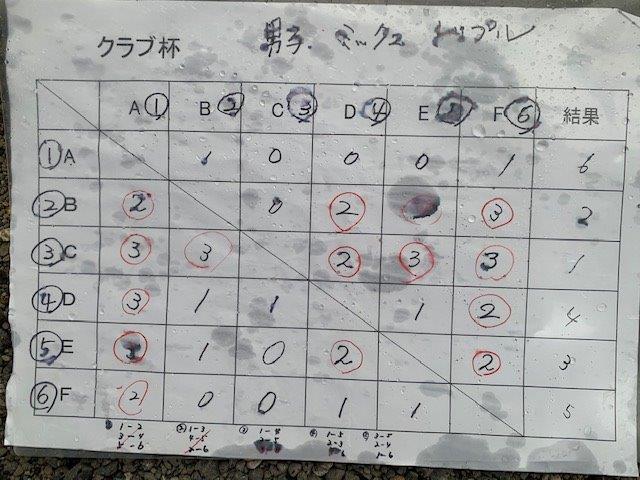 クラブ杯 男子. ミックス トリプル
A① B② C③ D④ E⑤ F⑥ 結果
①A 1 0 0 0 1 6
②B 2 0 2 3 2
③C 3 3 2 3 3 1
④D 3 1 1 1 2 4
⑤E 1 0 2 2 3
⑥F 2 0 0 1 1 5
① 1-2 ② 1-3 ③ 1-4 ④ 1-5 ⑤ 3-5
3-4 4-5 2-3 2-4
5-6 2-6 1-6